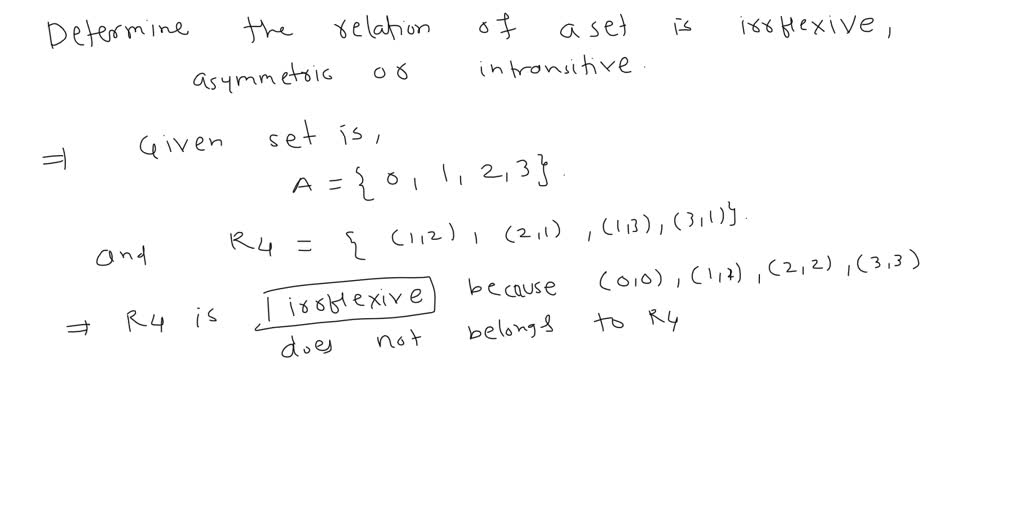 Determine the relation of a set is irroflexive,
asymmetric or intransitive.
⇒ Given set is,
A = { 0, 1, 2, 3}.
and R4 = { (1,2), (2,1), (1,3), (3,1)}.
⇒ R4 is irroflexive because (0,0), (1,1), (2,2), (3,3)
does not belongs to R4